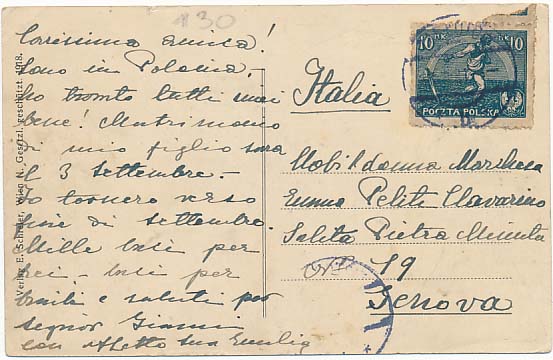 130
Carissima amica!
Sono in Polonia,
ho trovato tutti miei
bene! Matrimonio
di mio figlio sara
il 3 settembre -
Io tornero verso
fine di settembre.
Mille baci per
Lei - baci per
e saluti per
Segnor Gianni
con affetto sua Emilia
Verlag E. Schreier, Wien N. Gesetzl. geschützt 1918.
Italia
10 MK
10
POCZTA POLSKA
Nobildonna Marchesa
Emma Peliti Clavarino
Salita Pietra Minuta
19
Genova